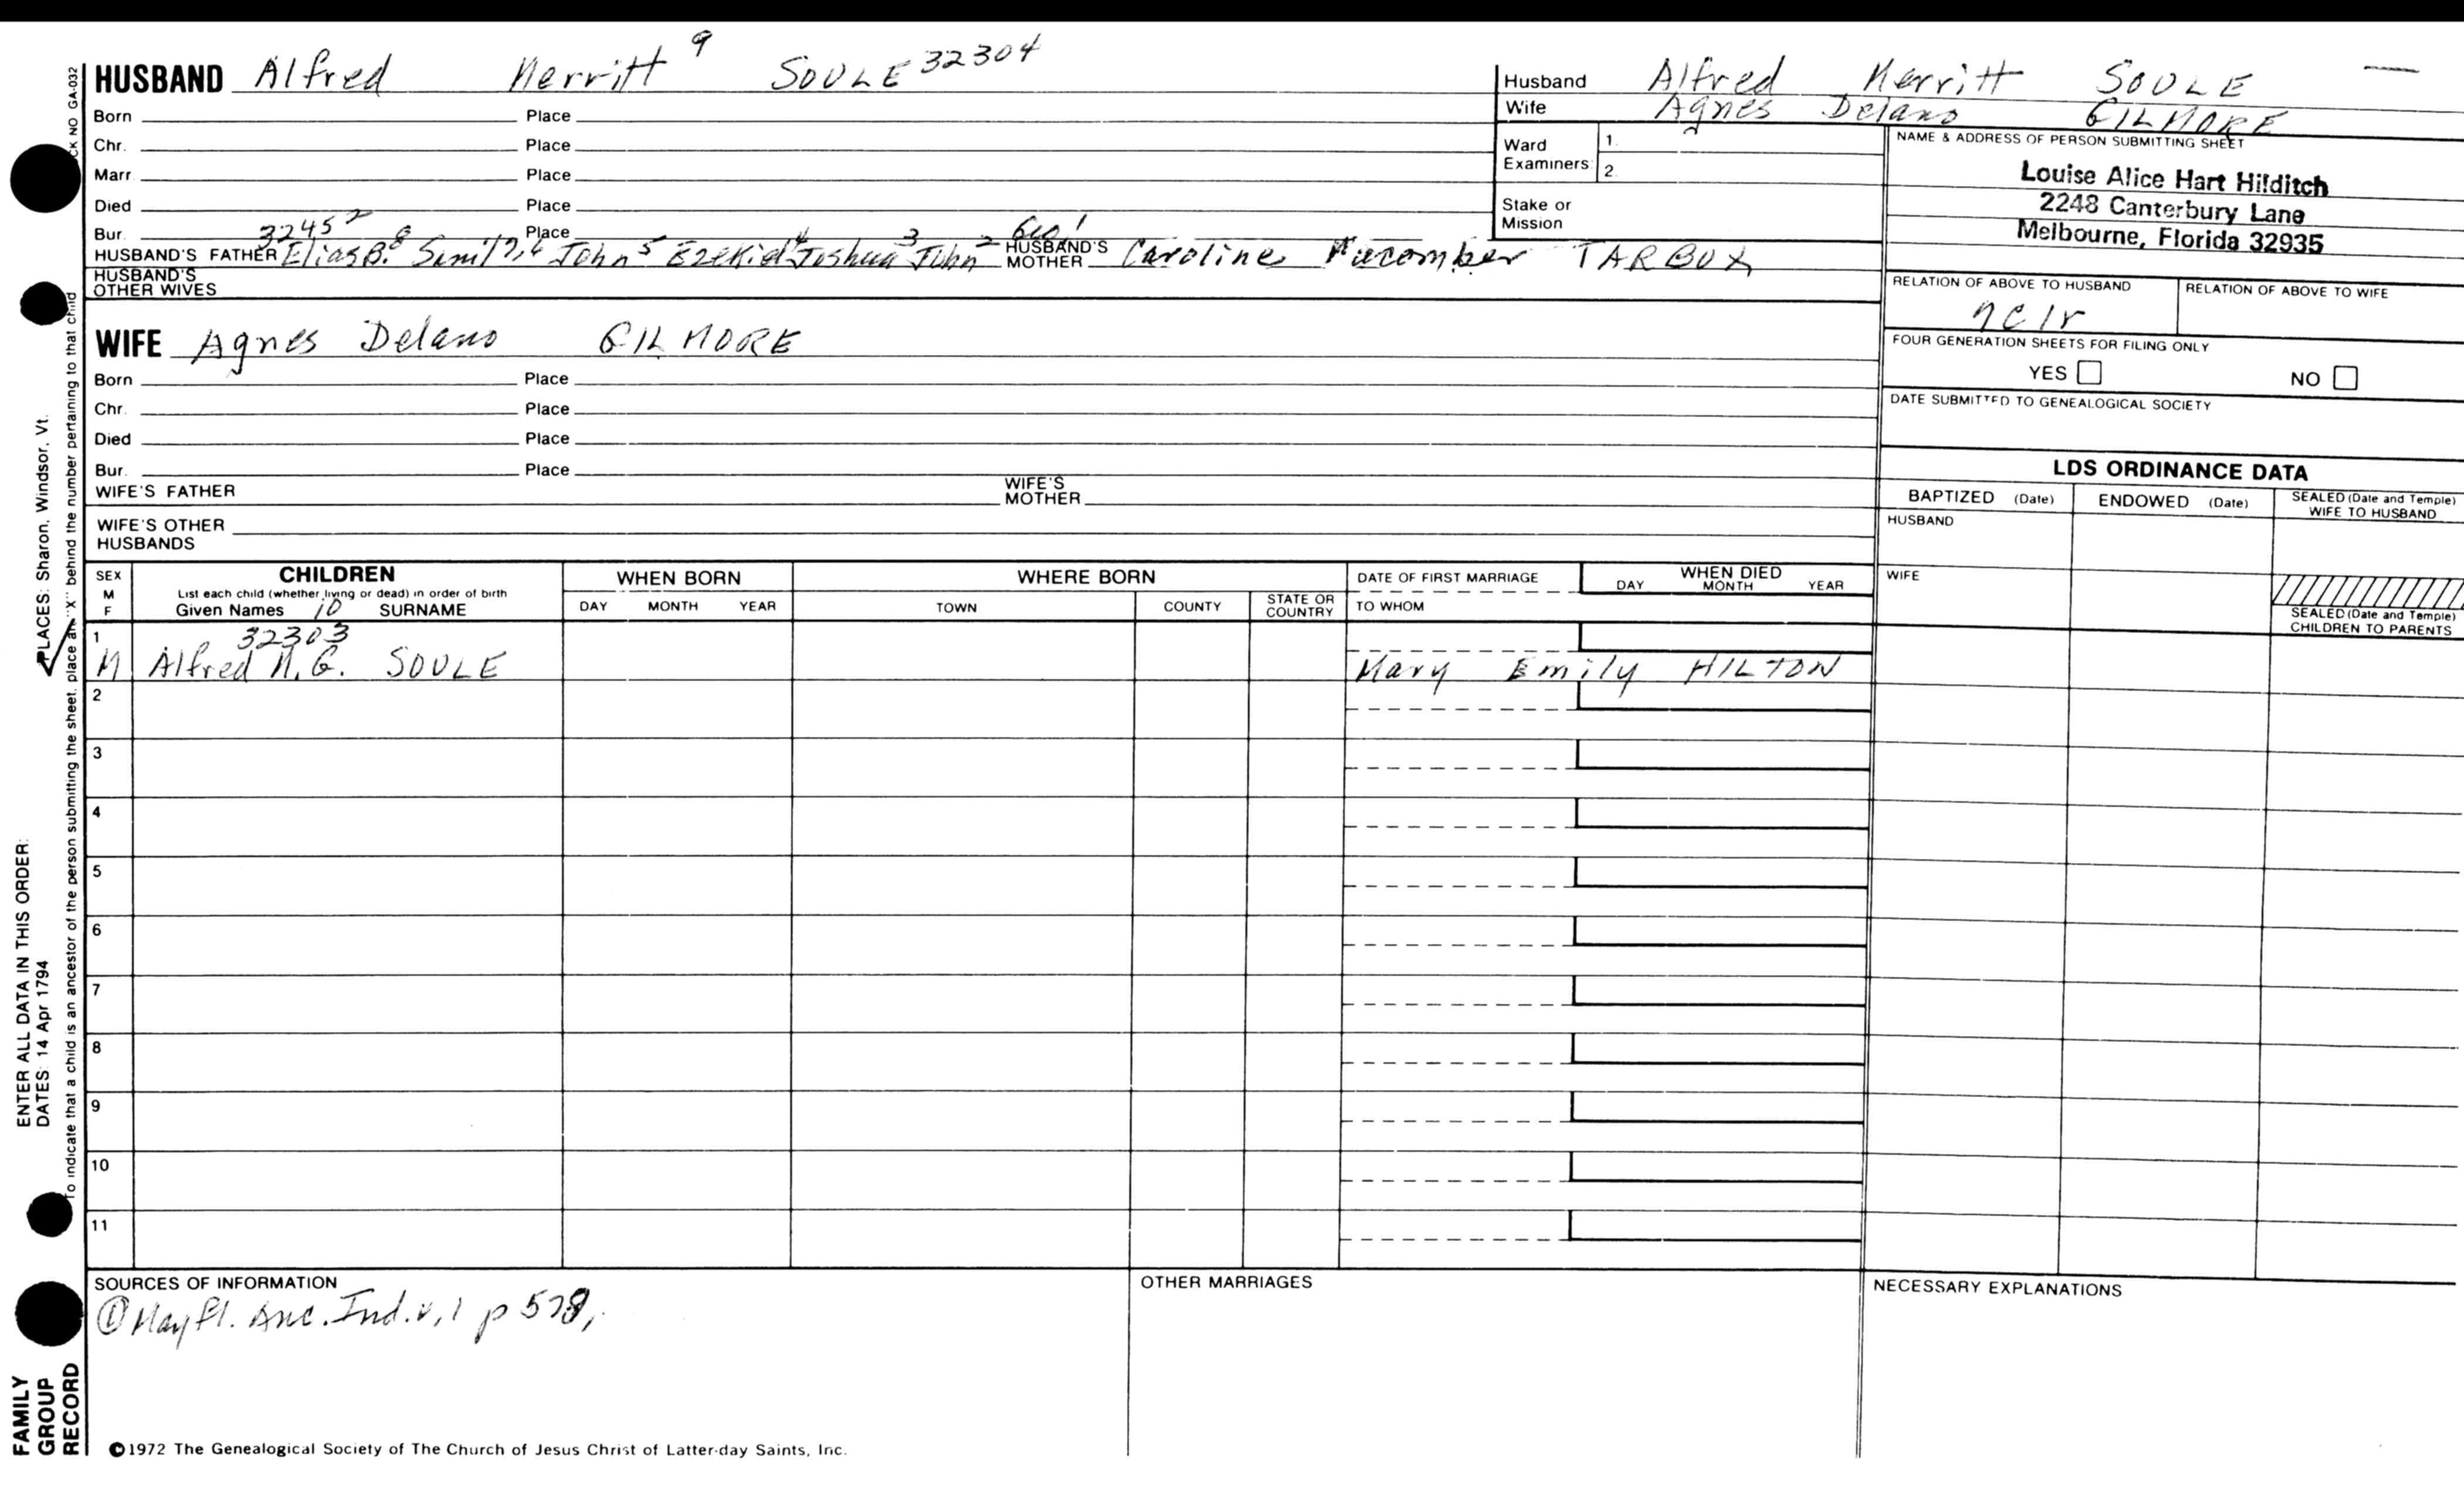 HUSBAND Alfred Merritt 9 SOULE 32304
Born Place
Chr. Place
Marr. Place
Died Place
Bur. 3245 2 Place
HUSBAND'S FATHER Elias B. 8 Saml 7,6 John 5 Ezekiel 4 Joshua 3 John 2 Geo 1 HUSBAND'S MOTHER Caroline Macomber TARBOX
HUSBAND'S OTHER WIVES
WIFE Agnes Delano GILMORE
Born Place
Chr. Place
Died Place
Bur. Place
WIFE'S FATHER WIFE'S MOTHER
WIFE'S OTHER HUSBANDS
Husband Alfred Merritt SOULE —
Wife Agnes Delano GILMORE
Ward Examiners: 1.
2.
Stake or Mission
NAME & ADDRESS OF PERSON SUBMITTING SHEET
Louise Alice Hart Hilditch
2248 Canterbury Lane
Melbourne, Florida 32935
RELATION OF ABOVE TO HUSBAND RELATION OF ABOVE TO WIFE
7C1r
FOUR GENERATION SHEETS FOR FILING ONLY
YES NO
DATE SUBMITTED TO GENEALOGICAL SOCIETY
LDS ORDINANCE DATA
BAPTIZED (Date) ENDOWED (Date) SEALED (Date and Temple) WIFE TO HUSBAND
HUSBAND
WIFE
SEALED (Date and Temple) CHILDREN TO PARENTS
SEX M F CHILDREN WHEN BORN WHERE BORN DATE OF FIRST MARRIAGE WHEN DIED
List each child (whether living or dead) in order of birth
Given Names 10 SURNAME DAY MONTH YEAR TOWN COUNTY STATE OR COUNTRY TO WHOM DAY MONTH YEAR
1 32303
M Alfred M. G. SOULE Mary Emily HILTON
2
3
4
5
6
7
8
9
10
11
SOURCES OF INFORMATION OTHER MARRIAGES NECESSARY EXPLANATIONS
① Mayfl. Anc. Ind. v, 1 p 578,
©1972 The Genealogical Society of The Church of Jesus Christ of Latter-day Saints, Inc.
CK NO GA-032
PLACES: Sharon, Windsor, Vt.
To indicate that a child is an ancestor of the person submitting the sheet, place an "X" behind the number pertaining to that child
ENTER ALL DATA IN THIS ORDER:
DATES: 14 Apr 1794
FAMILY
GROUP
RECORD